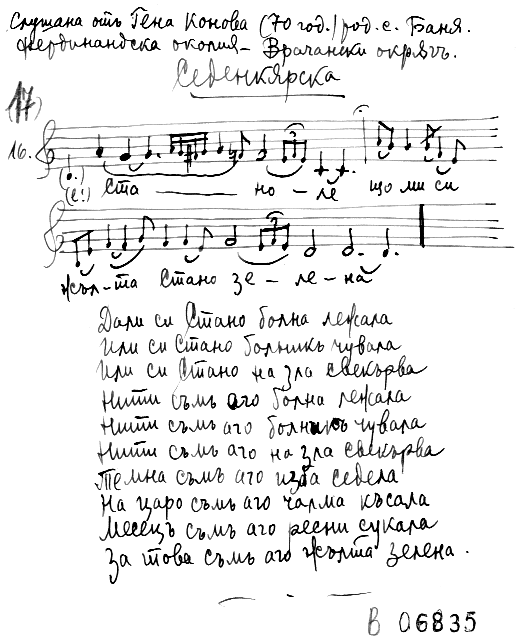 Слушана отъ Гена Конова (70 год.) род. с. Баня.
Фердинандска околия – Врачански окрягъ.
Седенкярска
(17)
16.
(е!) Ста – но – ле що ми си
жъл-та Стано зе – ле – на
Дали си Стано болна лежала
Или си Стано болникъ чувала
Или си Стано на зла свекърва
Нити съмъ аго болна лежала
Нити съмъ аго болникъ чувала
Нити съмъ аго на зла свекърва
Темна съмъ аго изба седела
На царо съмъ аго чалма късала
Месецъ съмъ аго ресни сукала
За това съмъ аго жълта зелена.
В 06835